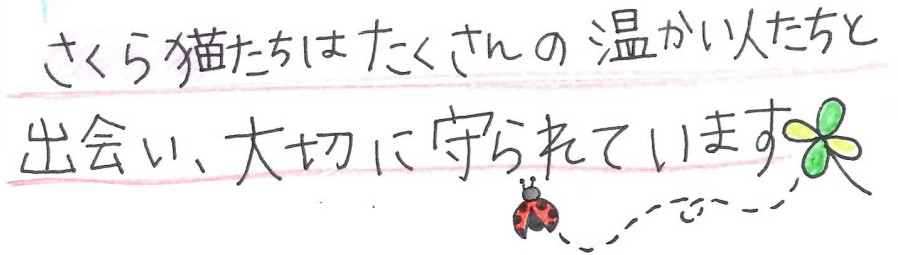 さくら猫たちはたくさんの温かい人たちと
出会い、大切に守られています